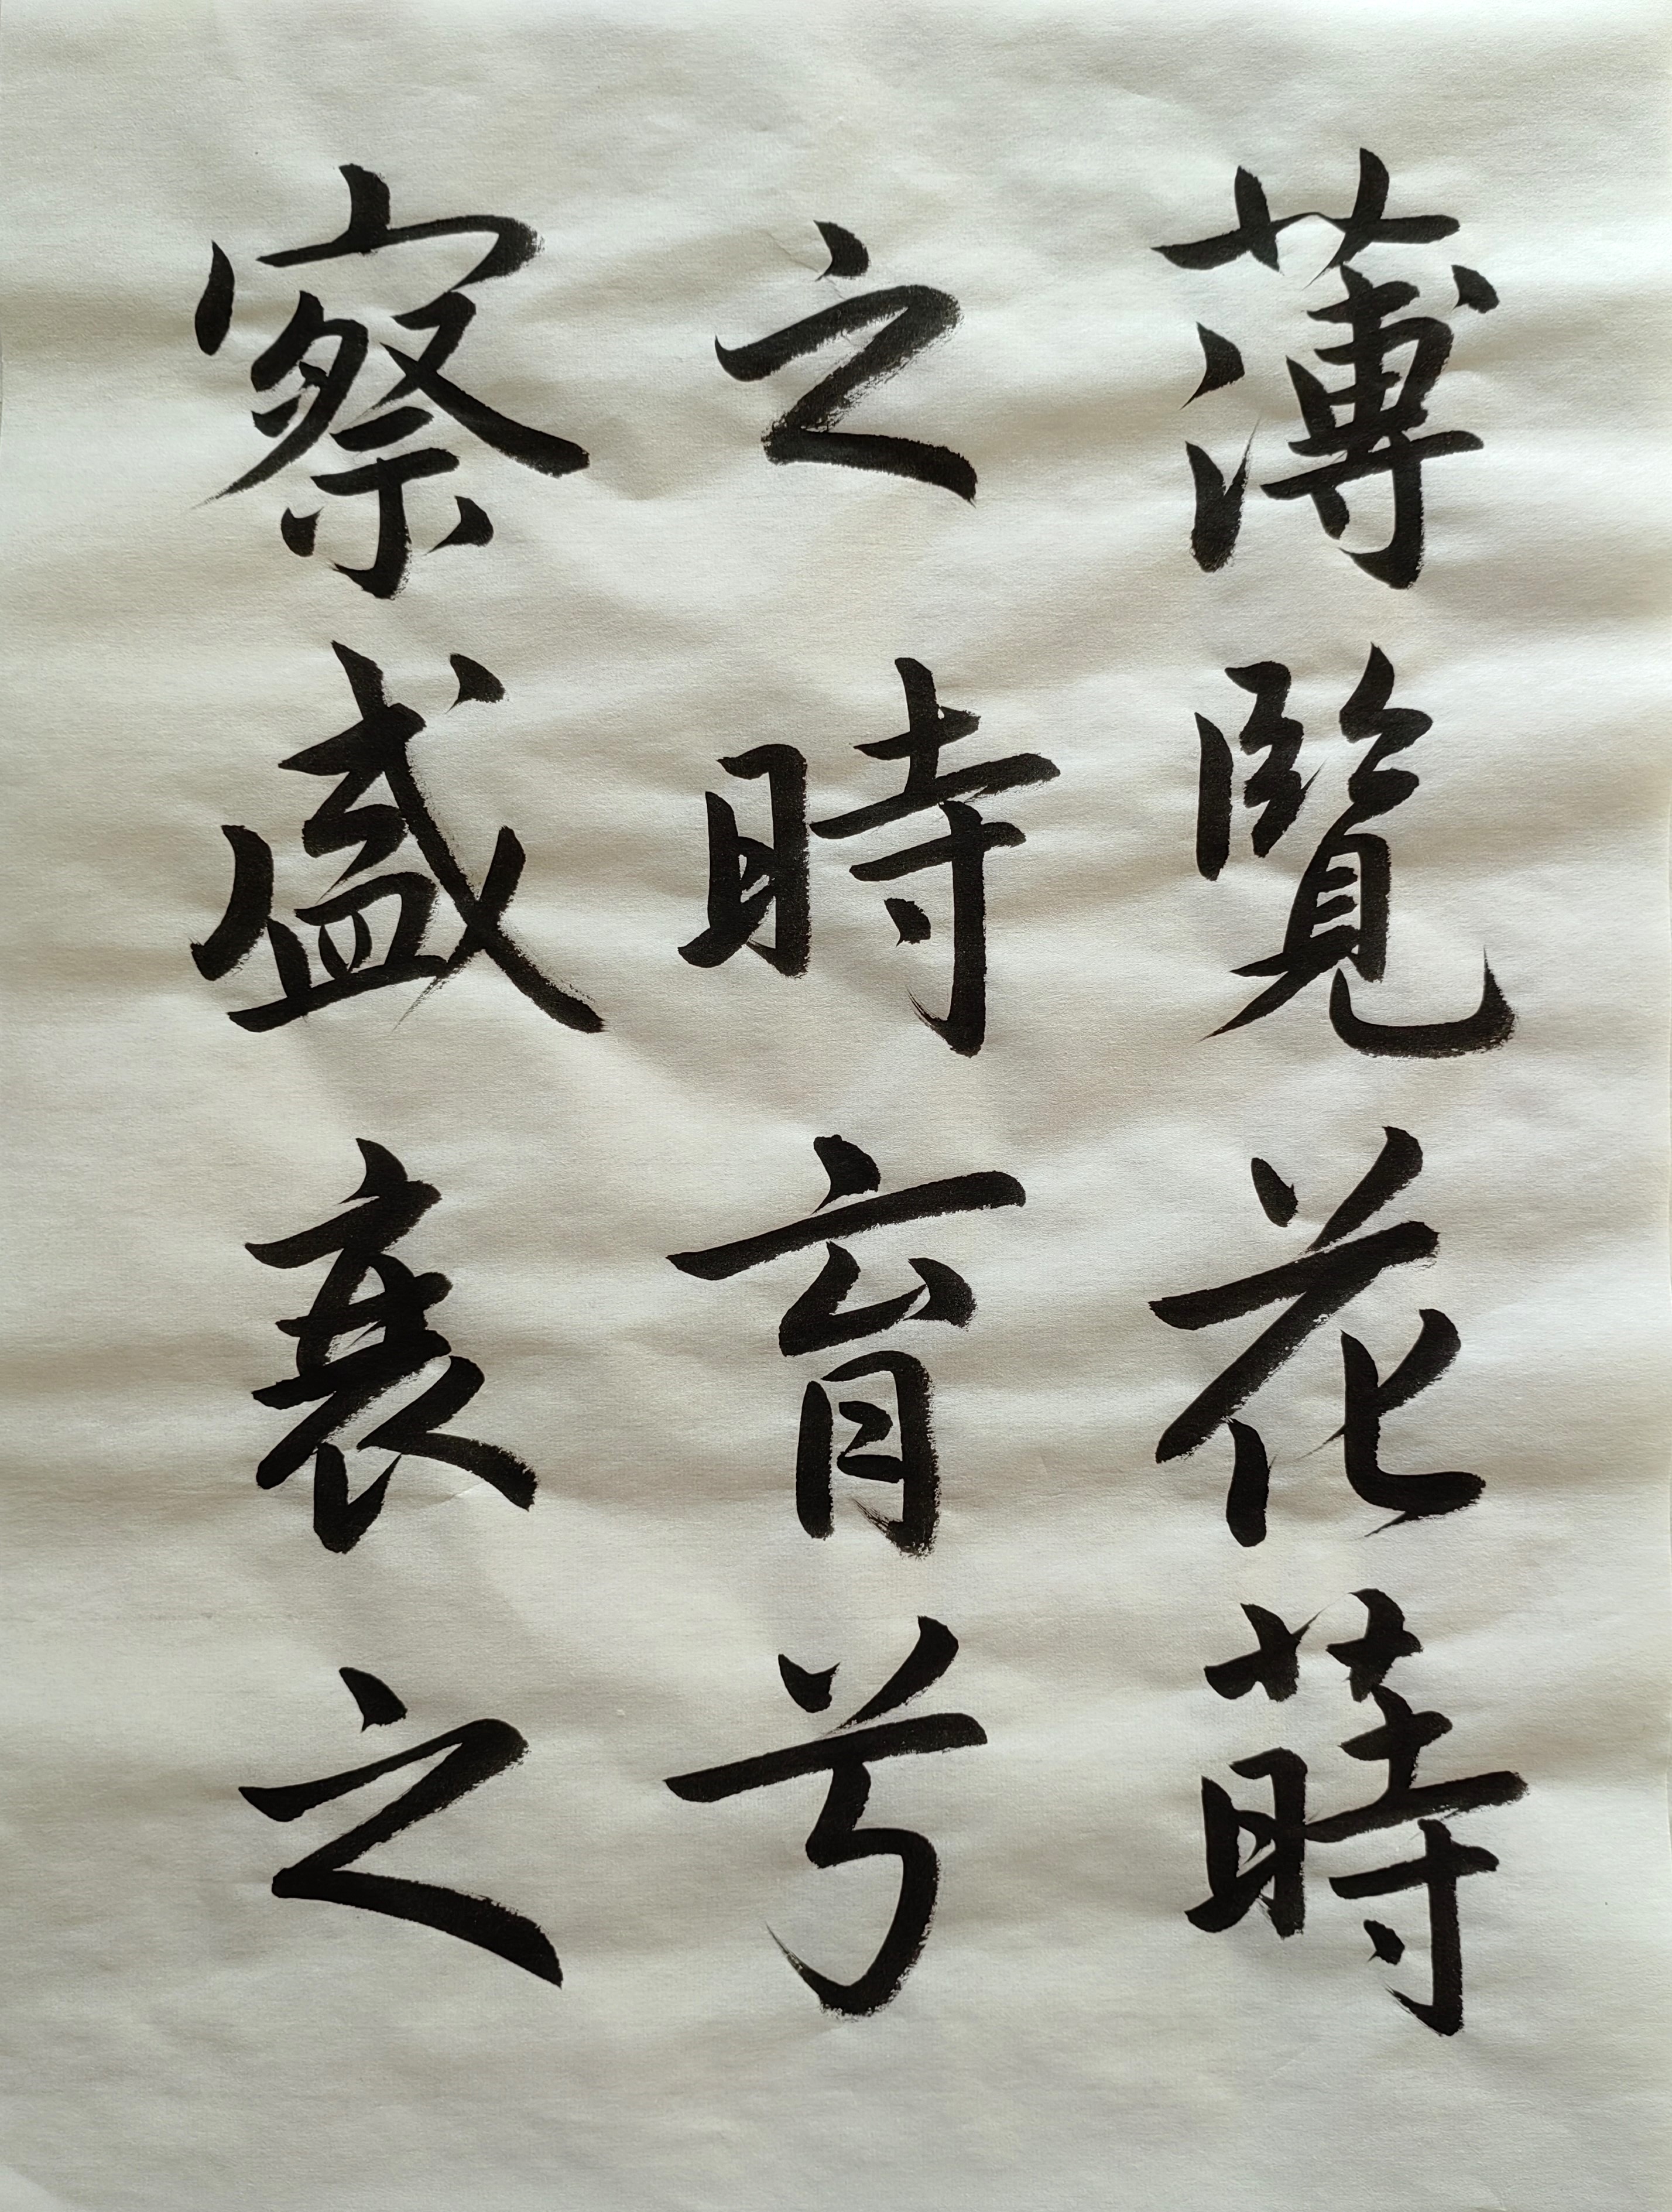 薄覽花蒔
之時育兮
察盛衰之